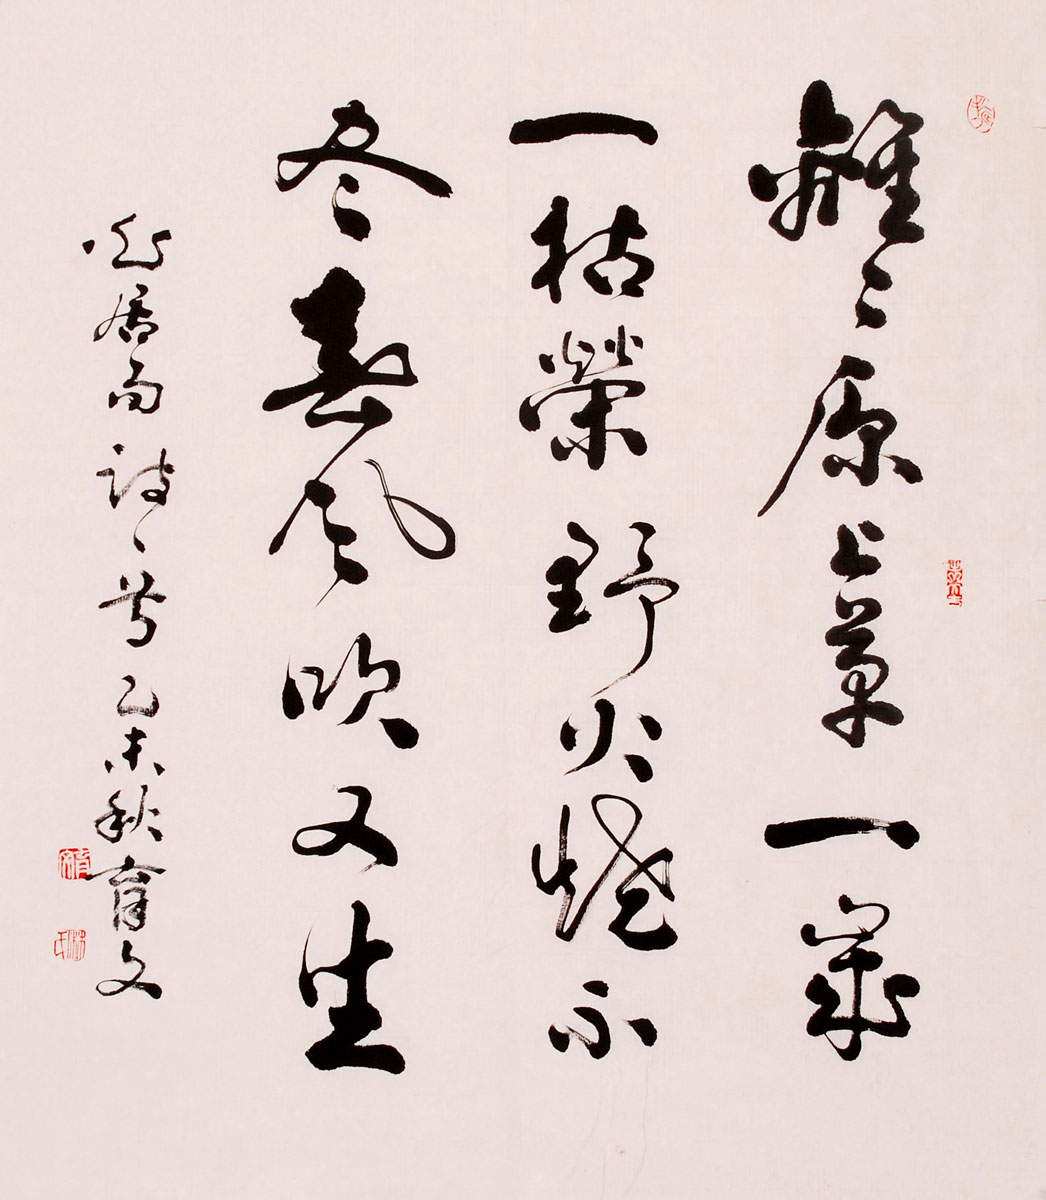 離々原上草一歲
一枯榮野火燒不
尽春風吹又生
白居易詩一首乙未秋育文